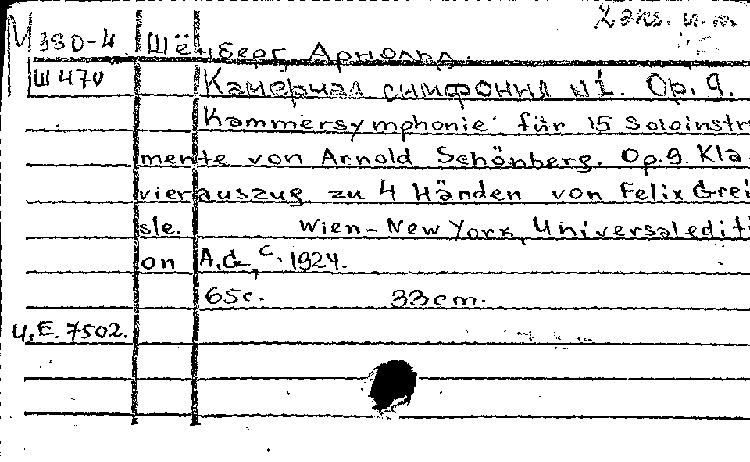 Закс. и.т.
М 380-4 Шёнберг, Арнольд.
Ш 470 Камерная симфония №1. Op. 9.
Kammersymphonie für 15 Soloinstr
mente von Arnold Schönberg. Op.9. Kla
vierauszug zu 4 Händen von Felix Grei
sle. Wien-New York, Universaledit
on A.G., c. 1924.
65c. 33cm.
U.E. 7502.